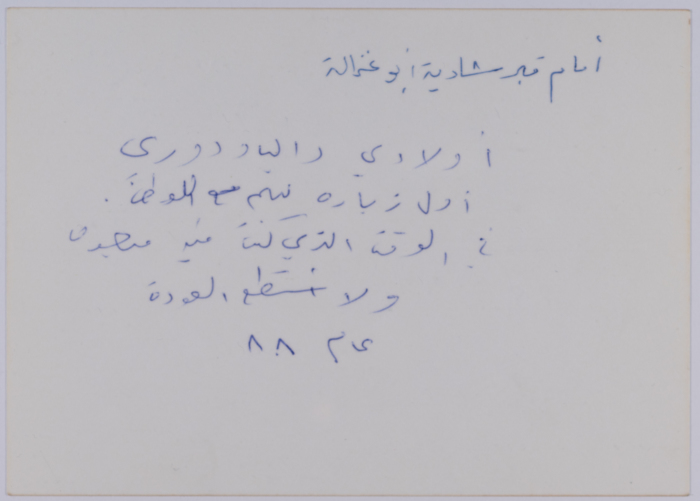 أمام قبر شادية أبو غزالة
أولادي داليا و دوري
أول زياره لهم مع للوطن .
في الوقت الذي كنت فيه مبعده
ولا نستطع العودة
عام ٨٨